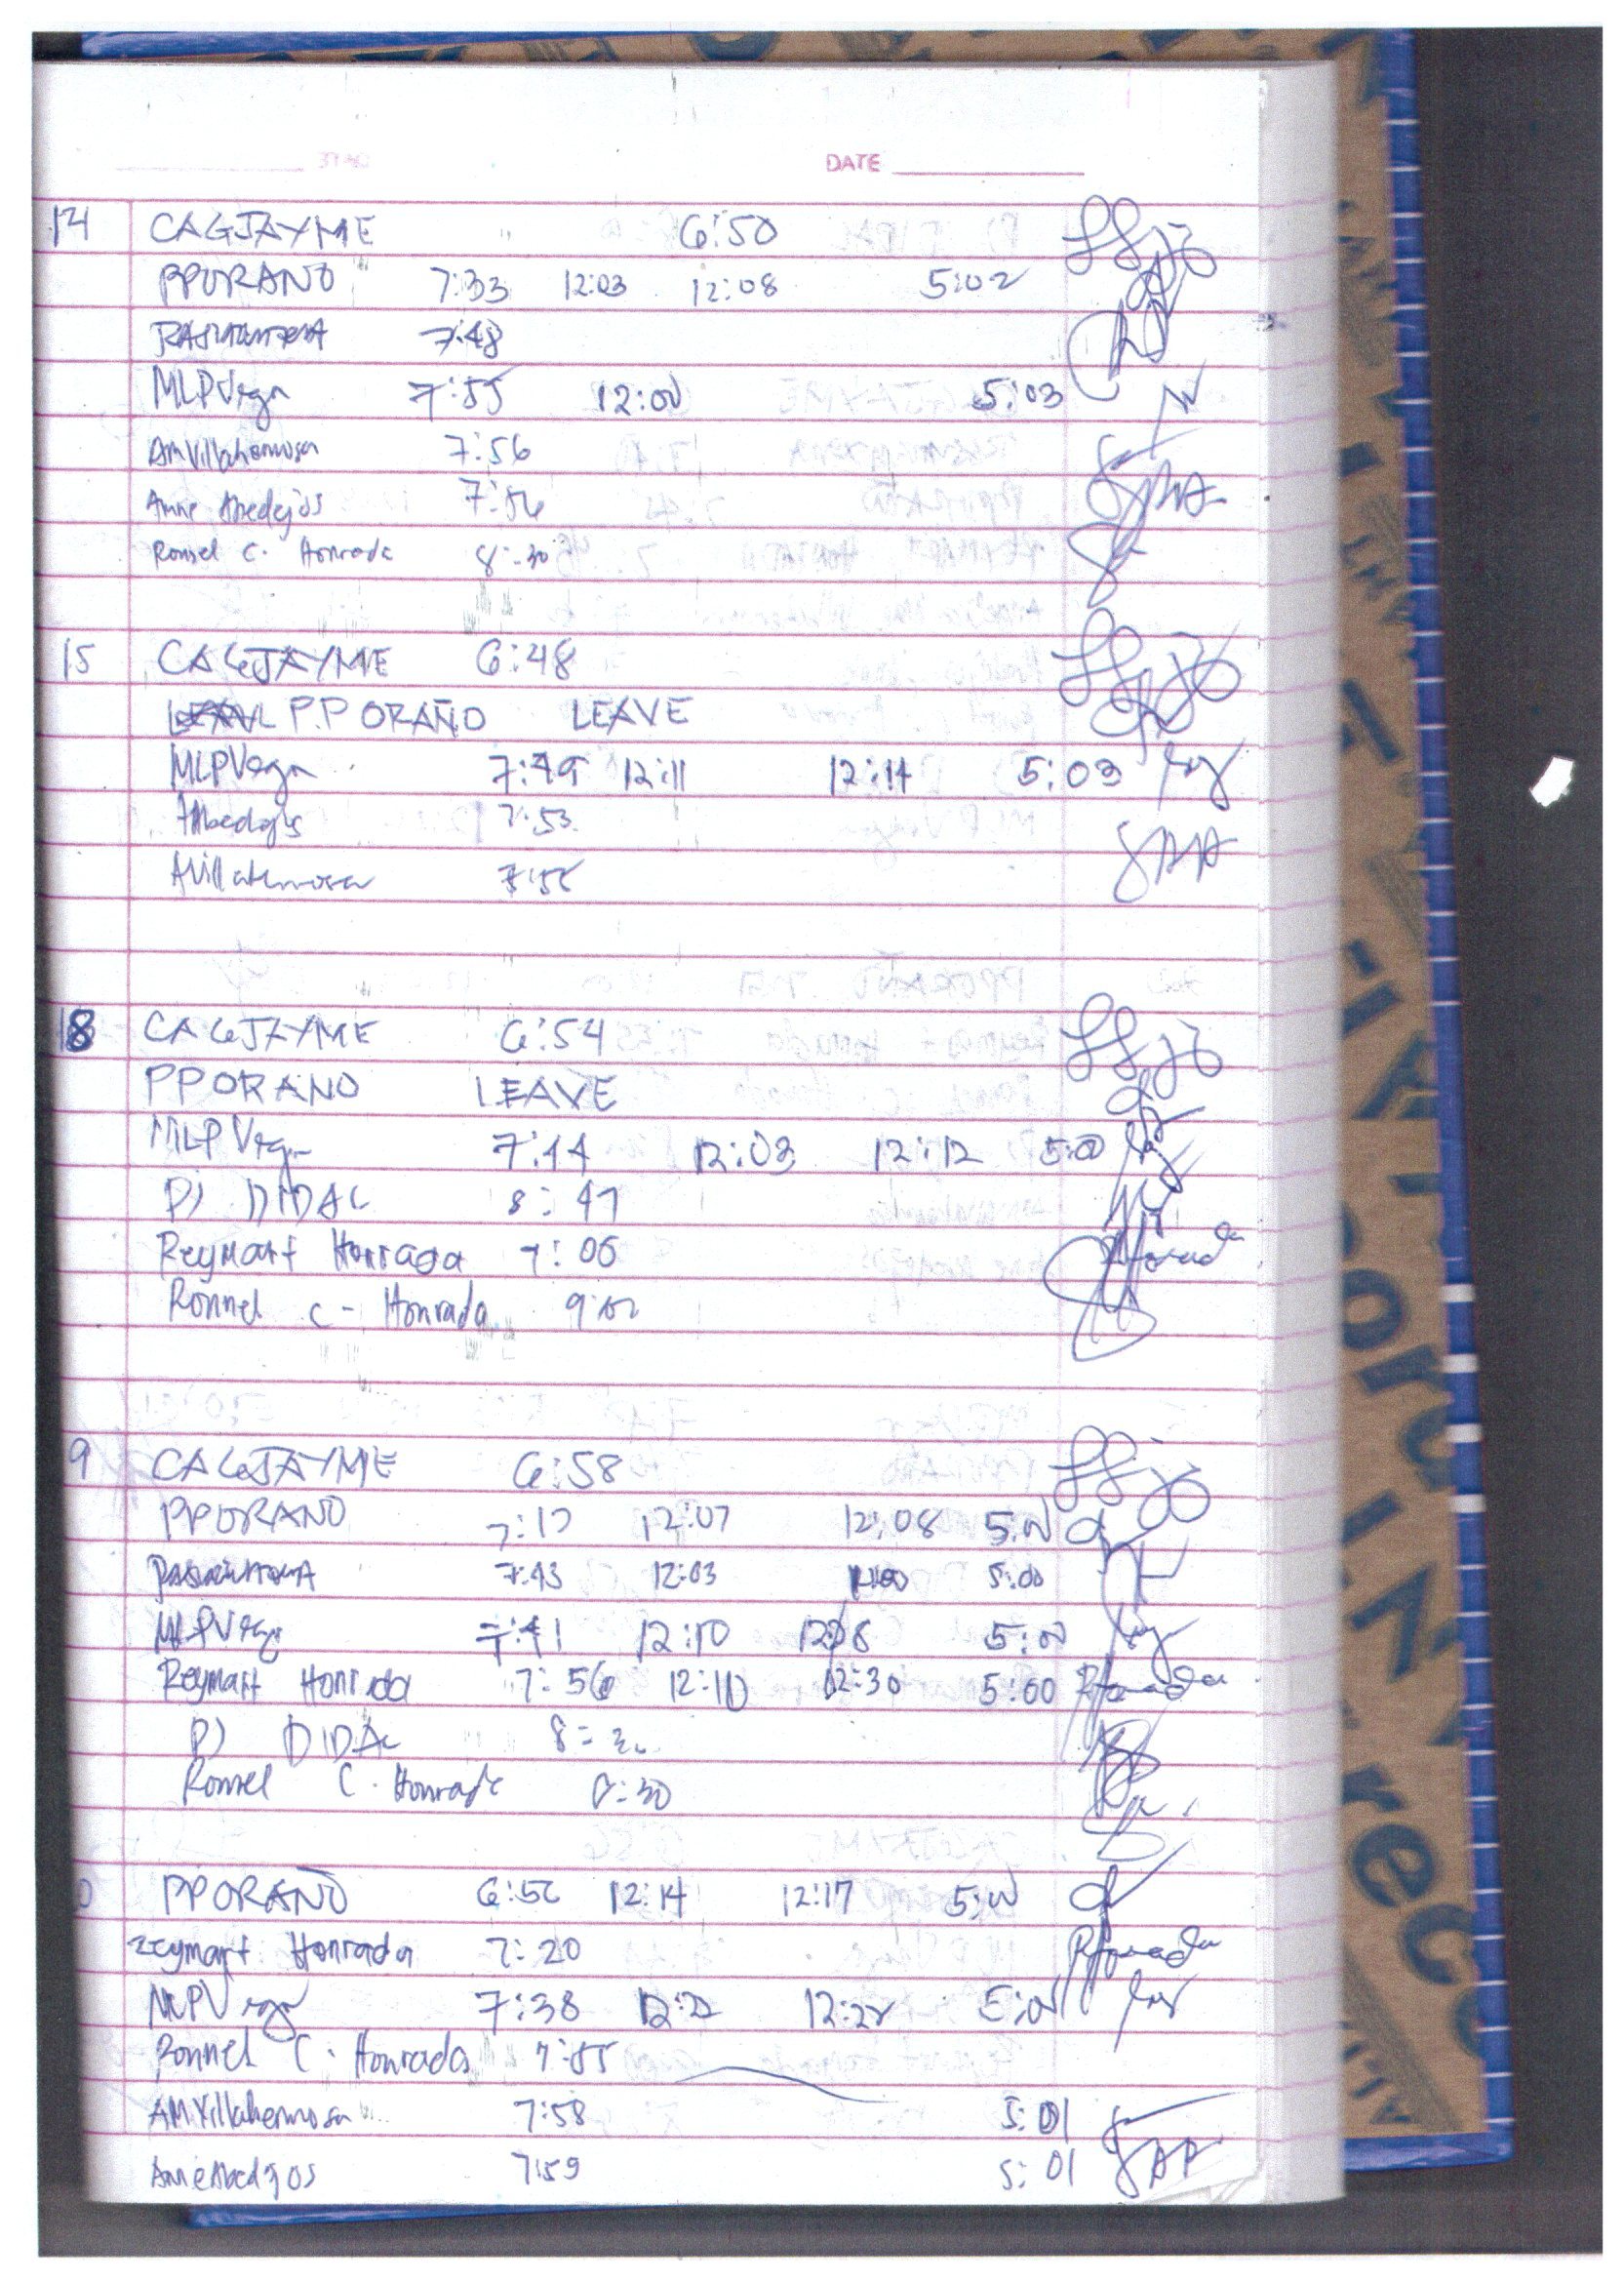 DATE
14 CAGJAYME 6:50
PPORAÑO 7:33 12:03 12:08 5:02
7:48
MLPVega 7:55 12:00 5:03
AMVillahermosa 7:56
Anne Abedejos 7:56
Ronnel C. Honrada 8:30
15 CAGJAYME 6:48
P.P ORAÑO LEAVE
MLPVega 7:49 12:11 12:14 5:03
7:53
AVillahermosa 7:55
18 CAGJAYME 6:54
PPORANO LEAVE
MLPVega 7:44 12:03 12:12 5:00
PJ DIDAL 8:47
Reymart Honrada 7:06
Ronnel C - Honrada
9 CAGJAYME 6:58
PPORANO 12:07 12:08 5:00
7:43 12:03 5:00
MLPVega 7:41 12:10 5:00
Reymart Honrada 7:56 12:10 12:30 5:00
PJ DIDAL
Ronnel C. Honrada 8:30
0 PPORAÑO 6:56 12:14 12:17 5:00
Reymart Honrada 7:20
MLPVega 7:38 5:01
Ronnel C. Honrada 7:55
AMVillahermosa 7:58 5:01
Anne Abedejos 7:59 5:01